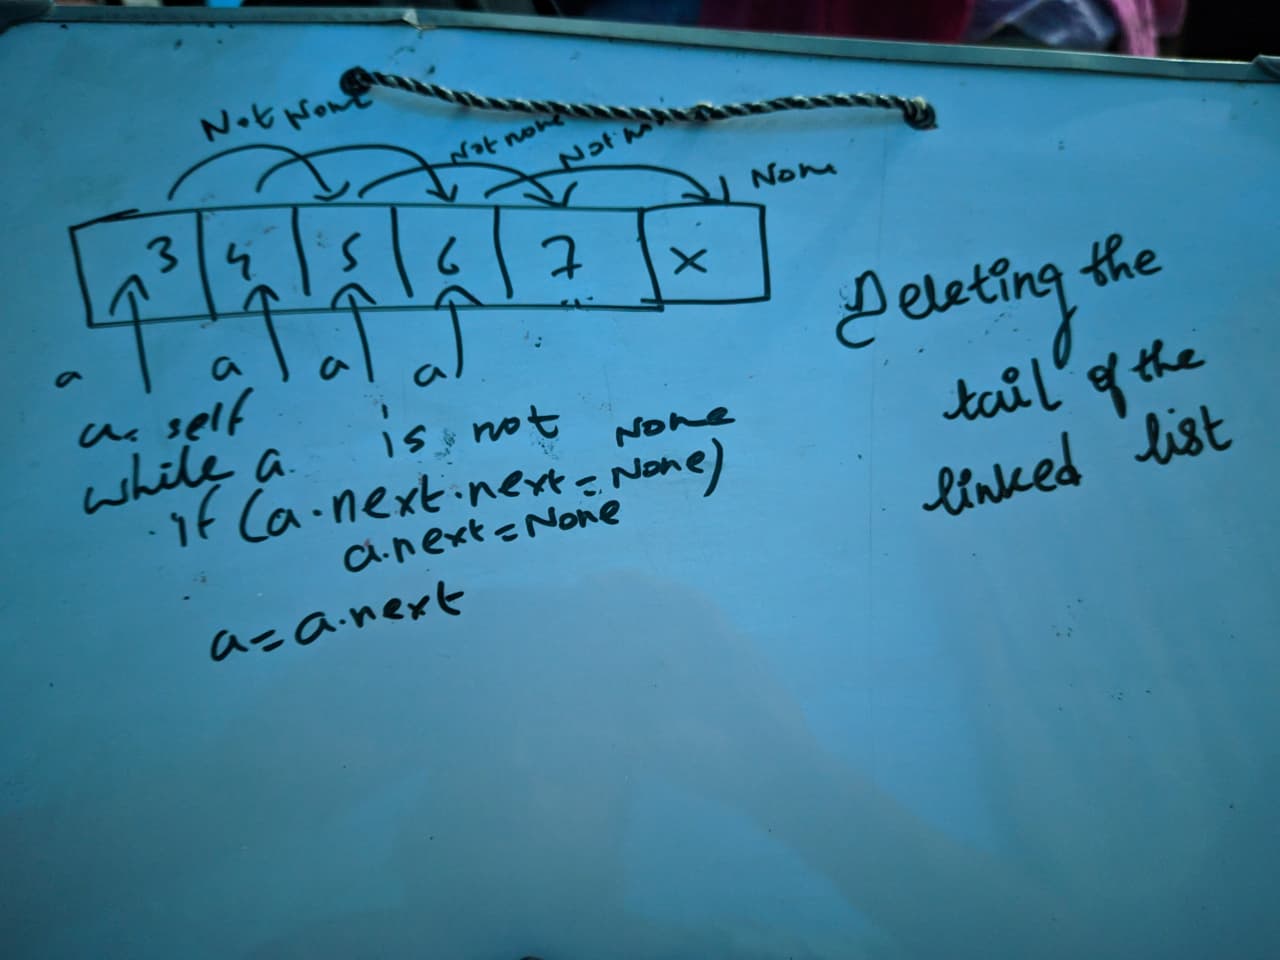 Not None
Not none
Not no
None
3 4 5 6 7 x
a a a a
a = self
while a. is not None
if (a.next.next = None)
a.next = None
a = a.next
Deleting the
tail of the
linked list